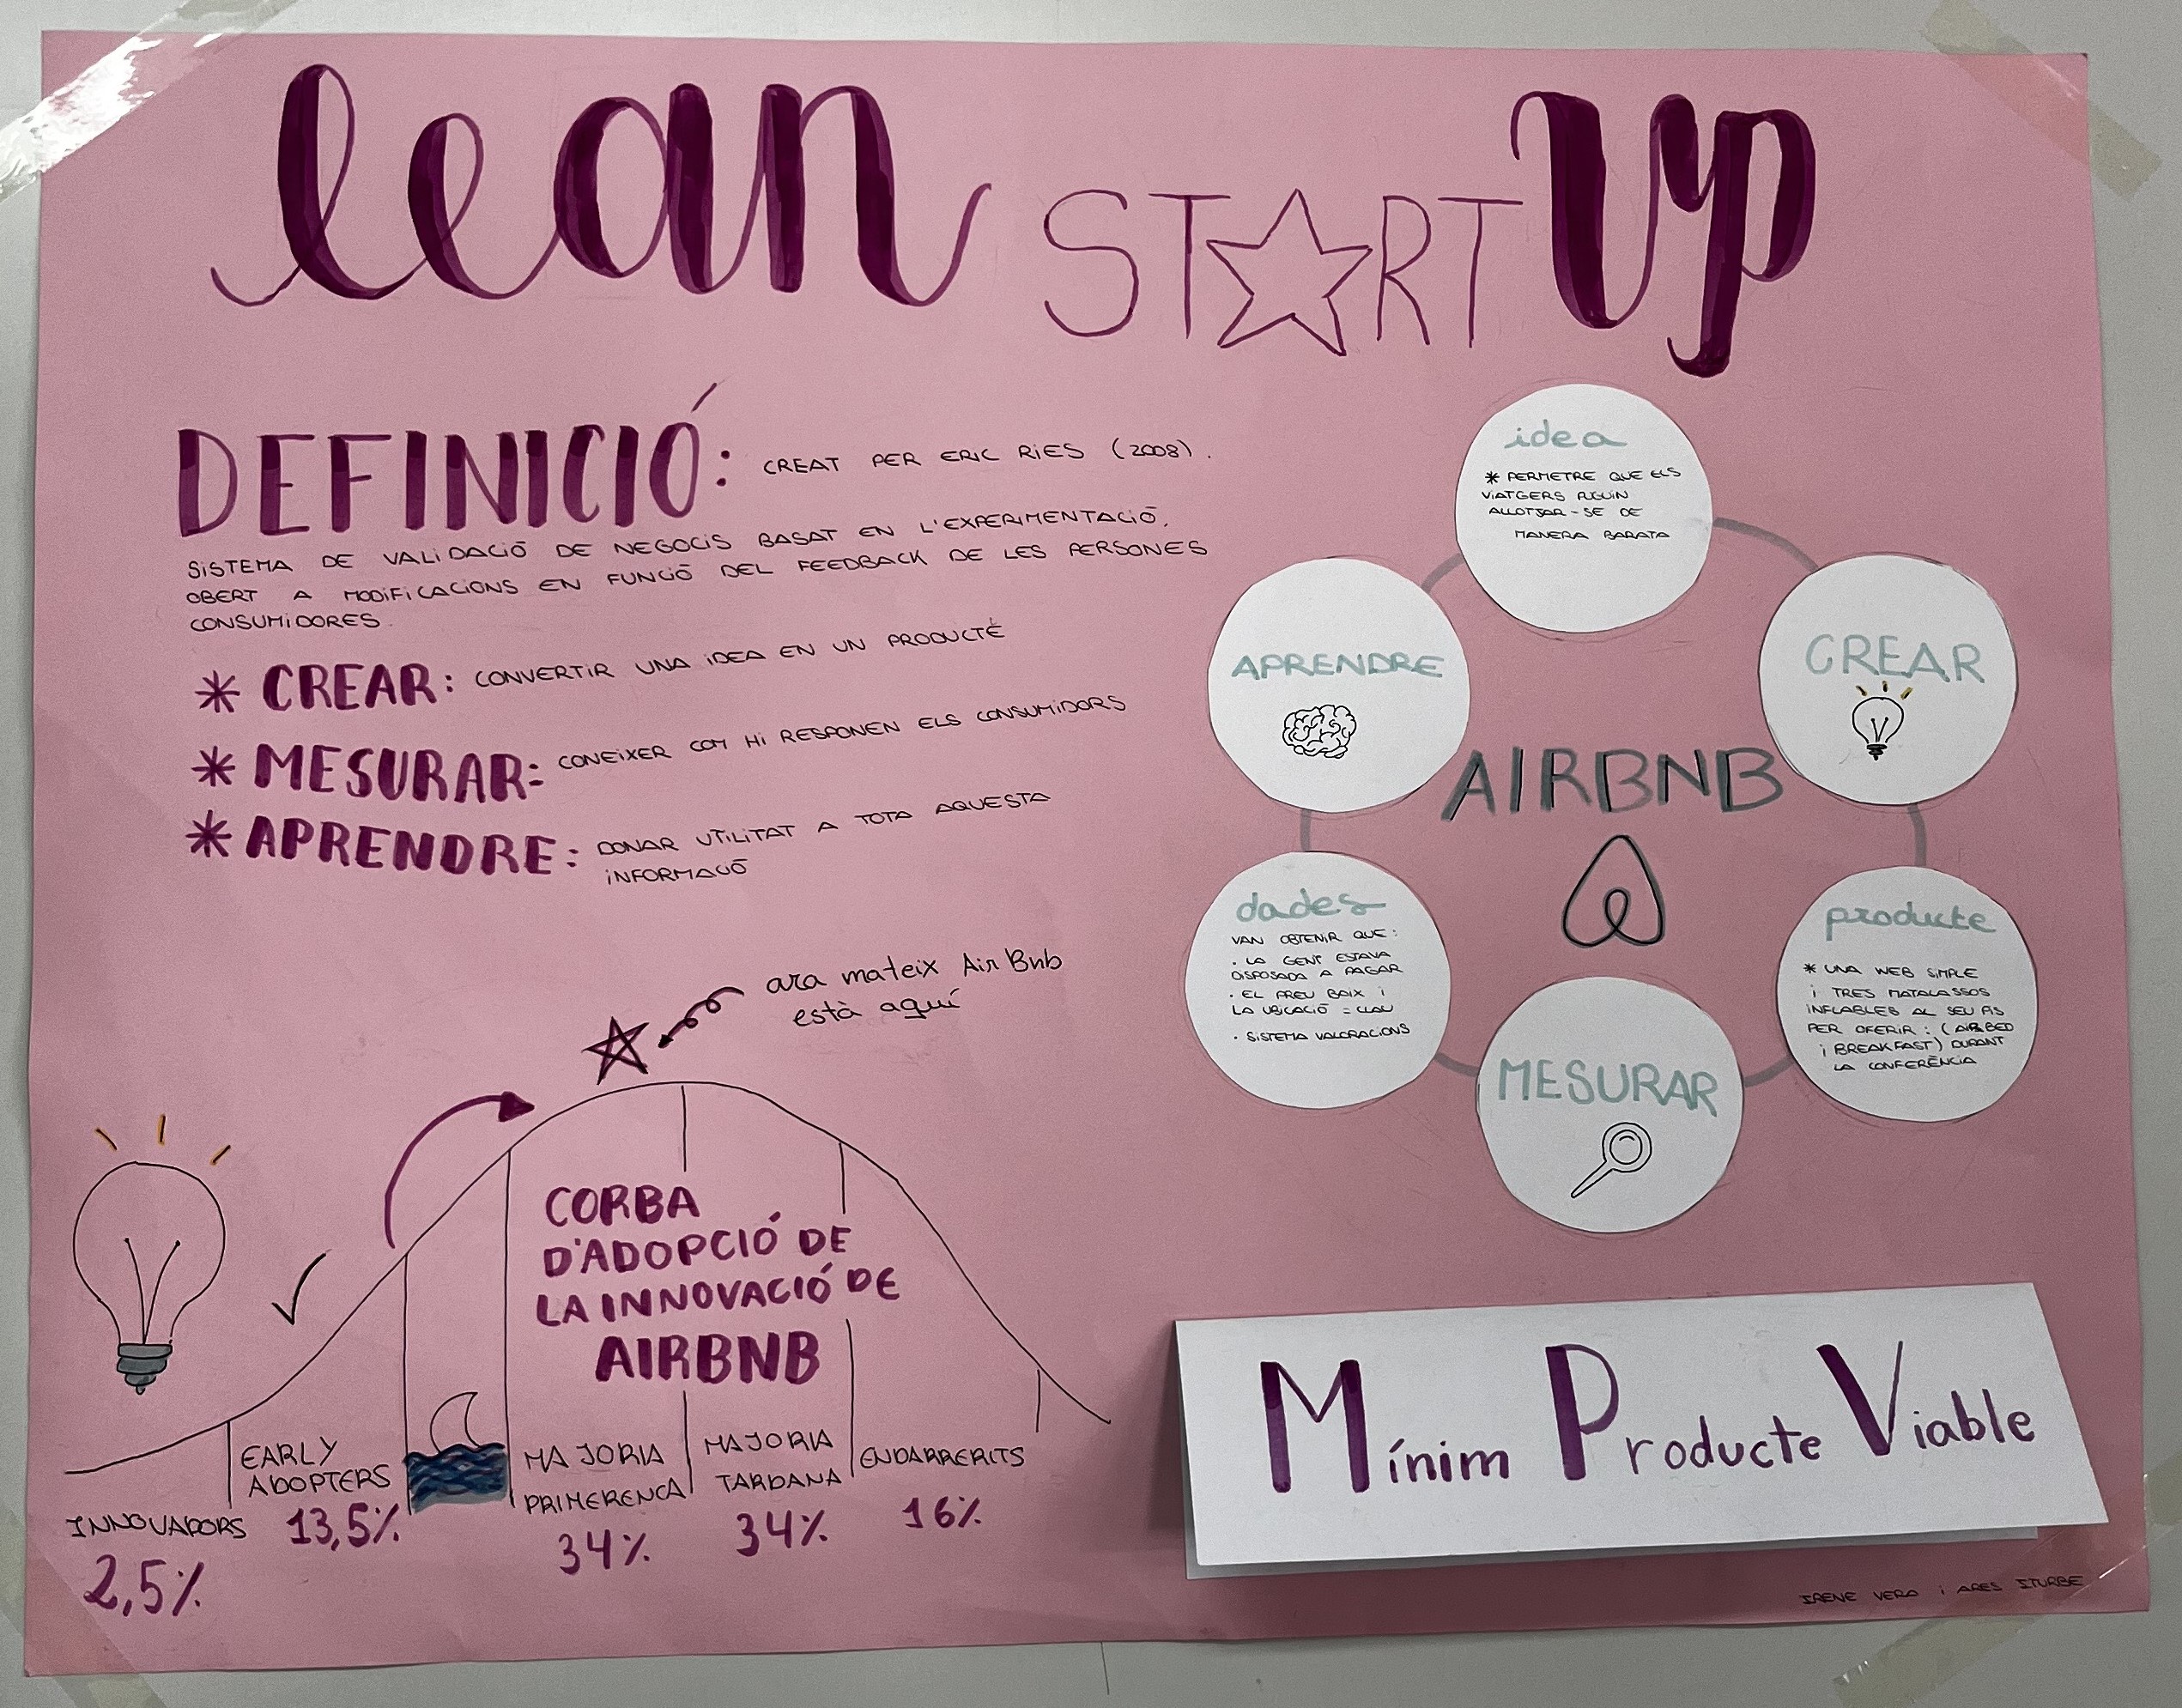 lean START UP
DEFINICIÓ: CREAT PER ERIC RIES (2008).
SISTEMA DE VALIDACIÓ DE NEGOCIS BASAT EN L'EXPERIMENTACIÓ,
OBERT A MODIFICACIONS EN FUNCIÓ DEL FEEDBACK DE LES PERSONES
CONSUMIDORES.
* CREAR: CONVERTIR UNA IDEA EN UN PRODUCTE
* MESURAR: CONEIXER COM HI RESPONEN ELS CONSUMIDORS
* APRENDRE: DONAR UTILITAT A TOTA AQUESTA
INFORMACIÓ
idea
* PERMETRE QUE ELS
VIATGERS PUGUIN
ALLOTJAR-SE DE
MANERA BARATA
CREAR
producte
* UNA WEB SIMPLE
I TRES MATALASSOS
INFLABLES AL SEU PIS
PER OFERIR: (AIRBED
i BREAKFAST) DURANT
LA CONFERÈNCIA
MESURAR
dades
VAN OBTENIR QUE:
· LA GENT ESTAVA
DISPOSADA A PAGAR
· EL PREU BAIX i
LA UBICACIÓ = CLAU
· SISTEMA VALORACIONS
APRENDRE
AIRBNB
ara mateix AirBnb
està aquí
CORBA
D'ADOPCIÓ DE
LA INNOVACIÓ DE
AIRBNB
INNOVADORS
2,5%
EARLY
ADOPTERS
13,5%
MAJORIA
PRIMERENCA
34%
MAJORIA
TARDANA
34%
ENDARRERITS
16%
Mínim Producte Viable
IRENE VERA i ARES ITURBE